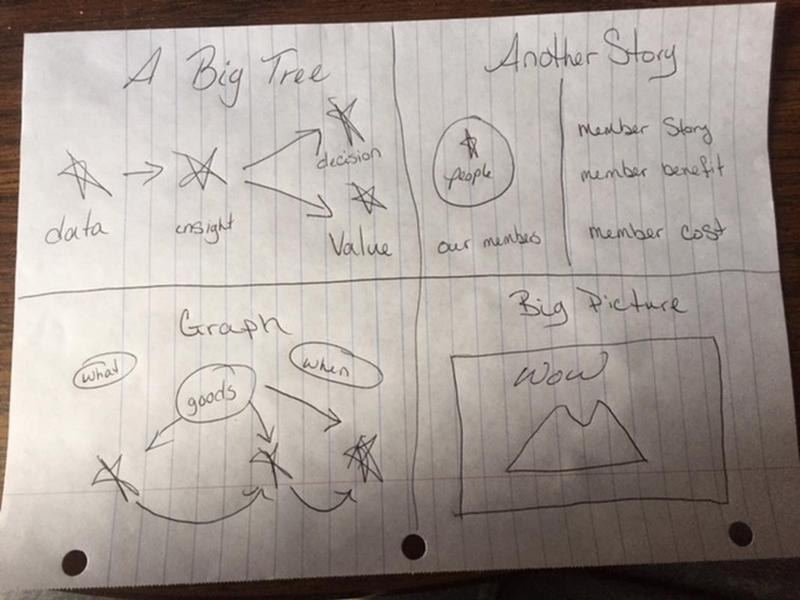 A Big Tree
decision
data
insight
Value
Another Story
people
our members
member Story
member benefit
member cost
Graph
what
goods
when
Big Picture
WOW